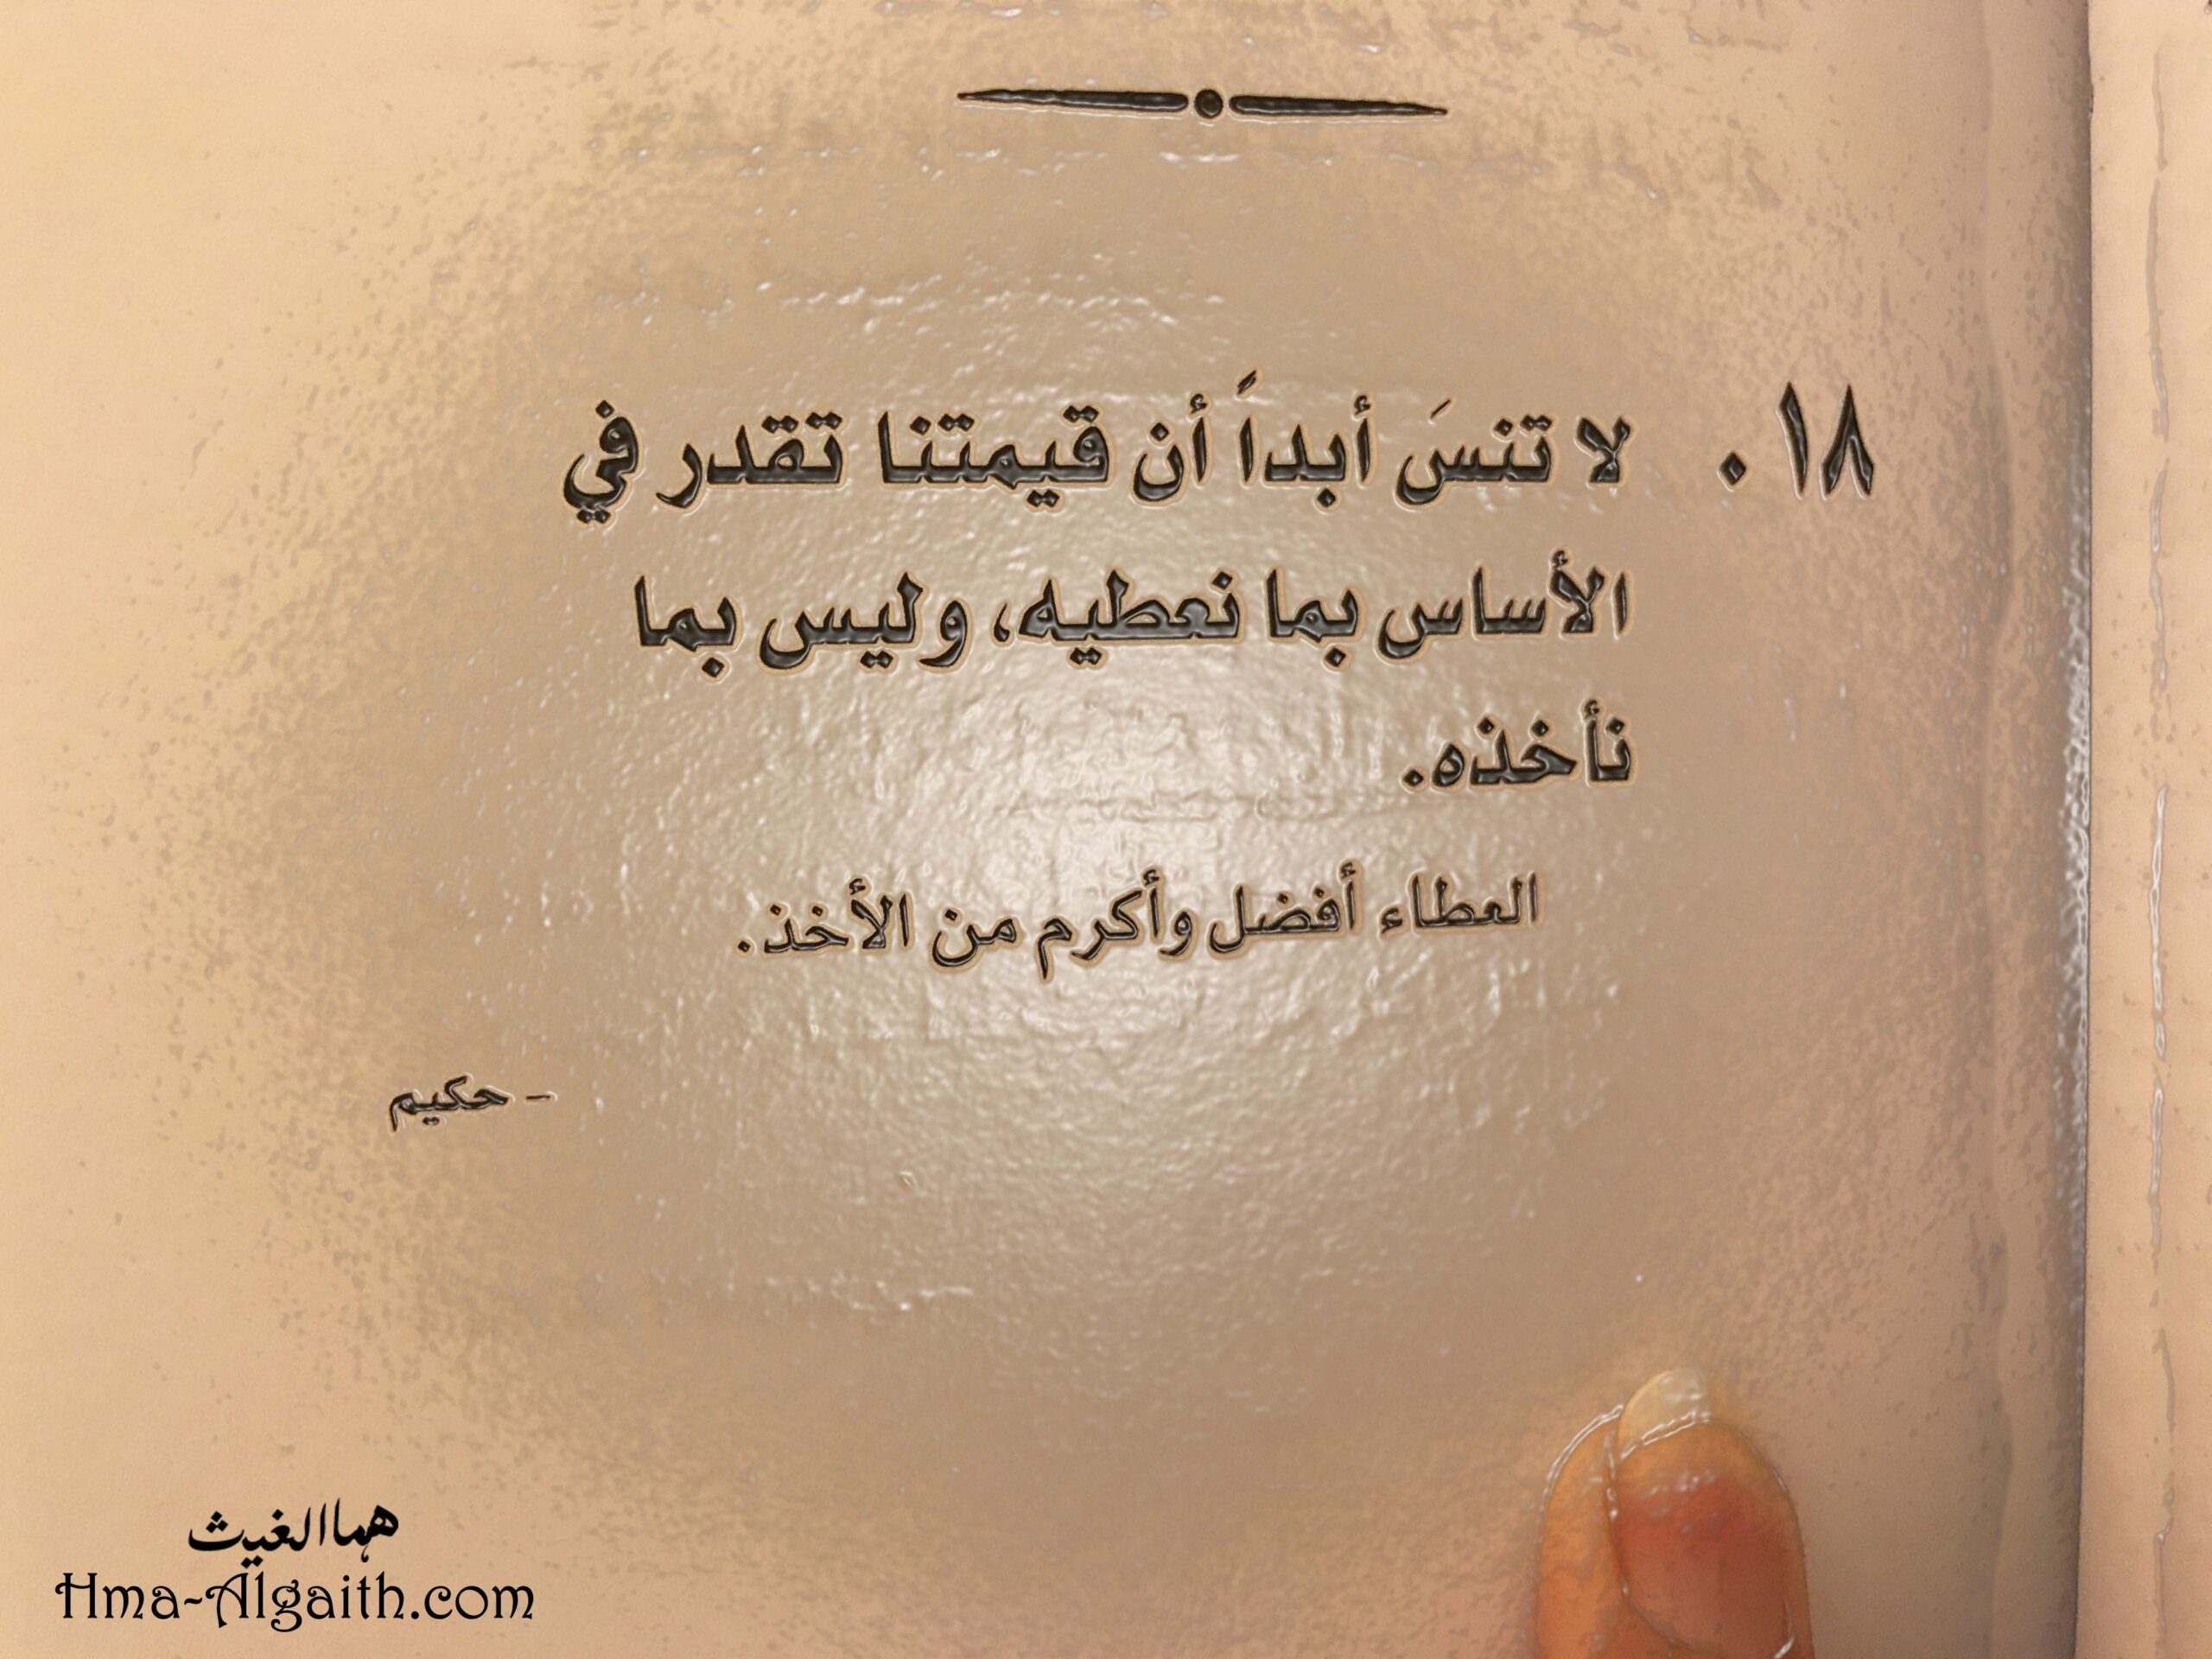 ١٨. لا تنسَ أبداً أن قيمتنا تقدر في
الأساس بما نعطيه، وليس بما
نأخذه.
العطاء أفضل وأكرم من الأخذ.
- حكيم
هما الغيث
Hma-Algaith.com